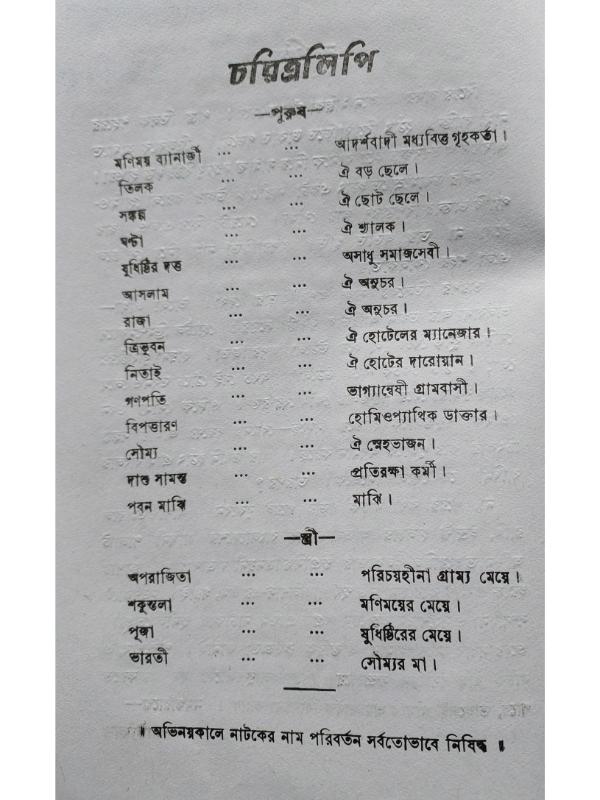 চরিত্রলিপি
—পুরুষ—
মণিময় ব্যানার্জী ... ... আদর্শবাদী মধ্যবিত্ত গৃহকর্তা।
তিলক ... ... ঐ বড় ছেলে।
সন্তু ... ... ঐ ছোট ছেলে।
ঘন্টা ... ... ঐ শ্যালক।
যুধিষ্ঠির দত্ত ... ... অসাধু সমাজসেবী।
আসলাম ... ... ঐ অনুচর।
রাজা ... ... ঐ অনুচর।
ত্রিভুবন ... ... ঐ হোটেলের ম্যানেজার।
নিতাই ... ... ঐ হোটের দারোয়ান।
গণপতি ... ... ভাগ্যান্বেষী গ্রামবাসী।
বিপত্তারণ ... ... হোমিওপ্যাথিক ডাক্তার।
সৌম্য ... ... ঐ স্নেহভাজন।
দাশু সামন্ত ... ... প্রতিরক্ষা কর্মী।
পবন মাঝি ... ... মাঝি।
—স্ত্রী—
অপরাজিতা ... ... পরিচয়হীনা গ্রাম্য মেয়ে।
শকুন্তলা ... ... মণিময়ের মেয়ে।
পূজা ... ... যুধিষ্ঠিরের মেয়ে।
ভারতী ... ... সৌম্যর মা।
॥ অভিনয়কালে নাটকের নাম পরিবর্তন সর্বতোভাবে নিষিদ্ধ ॥